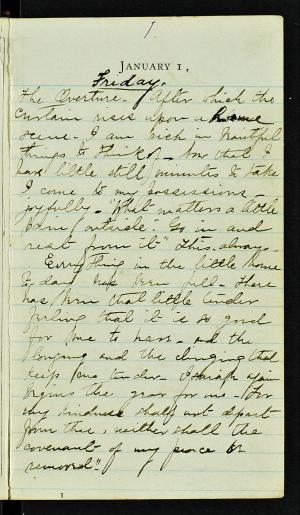 1
JANUARY 1,
Friday.
The Overture - After which the
curtain rises upon a home
scene - I am rich in beautiful
things to think of - Now that I
have little still minutes to take
I come to my possessions -
joyfully - "What matters a little
pain outside. Go in and
rest from it" This. always -
Everything in the little home
to day has been full - There
has been that little tender
feeling that it is so good
for me to have - and the
longing and the clinging that
keeps one tender - Isaiah again
begins the year for me - "For
my kindness shall not depart
from thee, neither shall the
covenant of my peace be
removed"
1